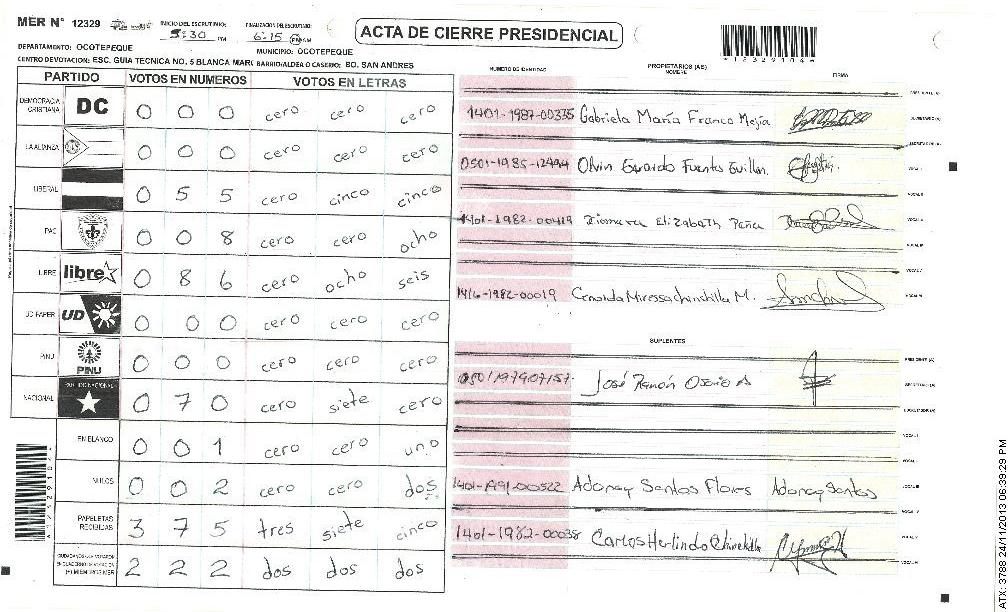 MER N° 12329
INICIO DEL ESCRUTINIO: 5:30 PM
FINALIZACION DEL ESCRUTINIO: 6:15 PM AM
ACTA DE CIERRE PRESIDENCIAL
DEPARTAMENTO: OCOTEPEQUE
MUNICIPIO: OCOTEPEQUE
CENTRO DE VOTACION: ESC. GUIA TECNICA NO. 5 BLANCA MARI BARRIO/ALDEA O CASERIO: BO. SAN ANDRES
PARTIDO VOTOS EN NUMEROS VOTOS EN LETRAS
DEMOCRACIA CRISTIANA DC 0 0 0 cero cero cero
LA ALIANZA 0 0 0 cero cero cero
LIBERAL 0 5 5 cero cinco cinco
PAC 0 0 8 cero cero ocho
LIBRE libre 0 8 6 cero ocho seis
UD FAPER UD 0 0 0 cero cero cero
PINU PINU 0 0 0 cero cero cero
NACIONAL PARTIDO NACIONAL 0 7 0 cero siete cero
EN BLANCO 0 0 1 cero cero uno
NULOS 0 0 2 cero cero dos
PAPELETAS RECIBIDAS 3 7 5 tres siete cinco
2 2 2 dos dos dos
NUMERO DE IDENTIDAD PROPIETARIOS (AS) NOMBRE FIRMA
1401-1987-00335 Gabriela María Franco Mejía
0501-1985-12494 Olvin Gerardo Fuentes Guillen.
1401-1982-00419 Xiomara Elizabeth Peña
1416-1982-00019 Miressa Chinchilla M.
SUPLENTES
0501197907157 José Ramón Osorio A
1401-1991-00522 Adonay Santos Flores Adonay Santos
1401-1982-00038 Carlos Herlindo Chinchilla
ATX: 3788 24/11/2013 06:39:29 PM